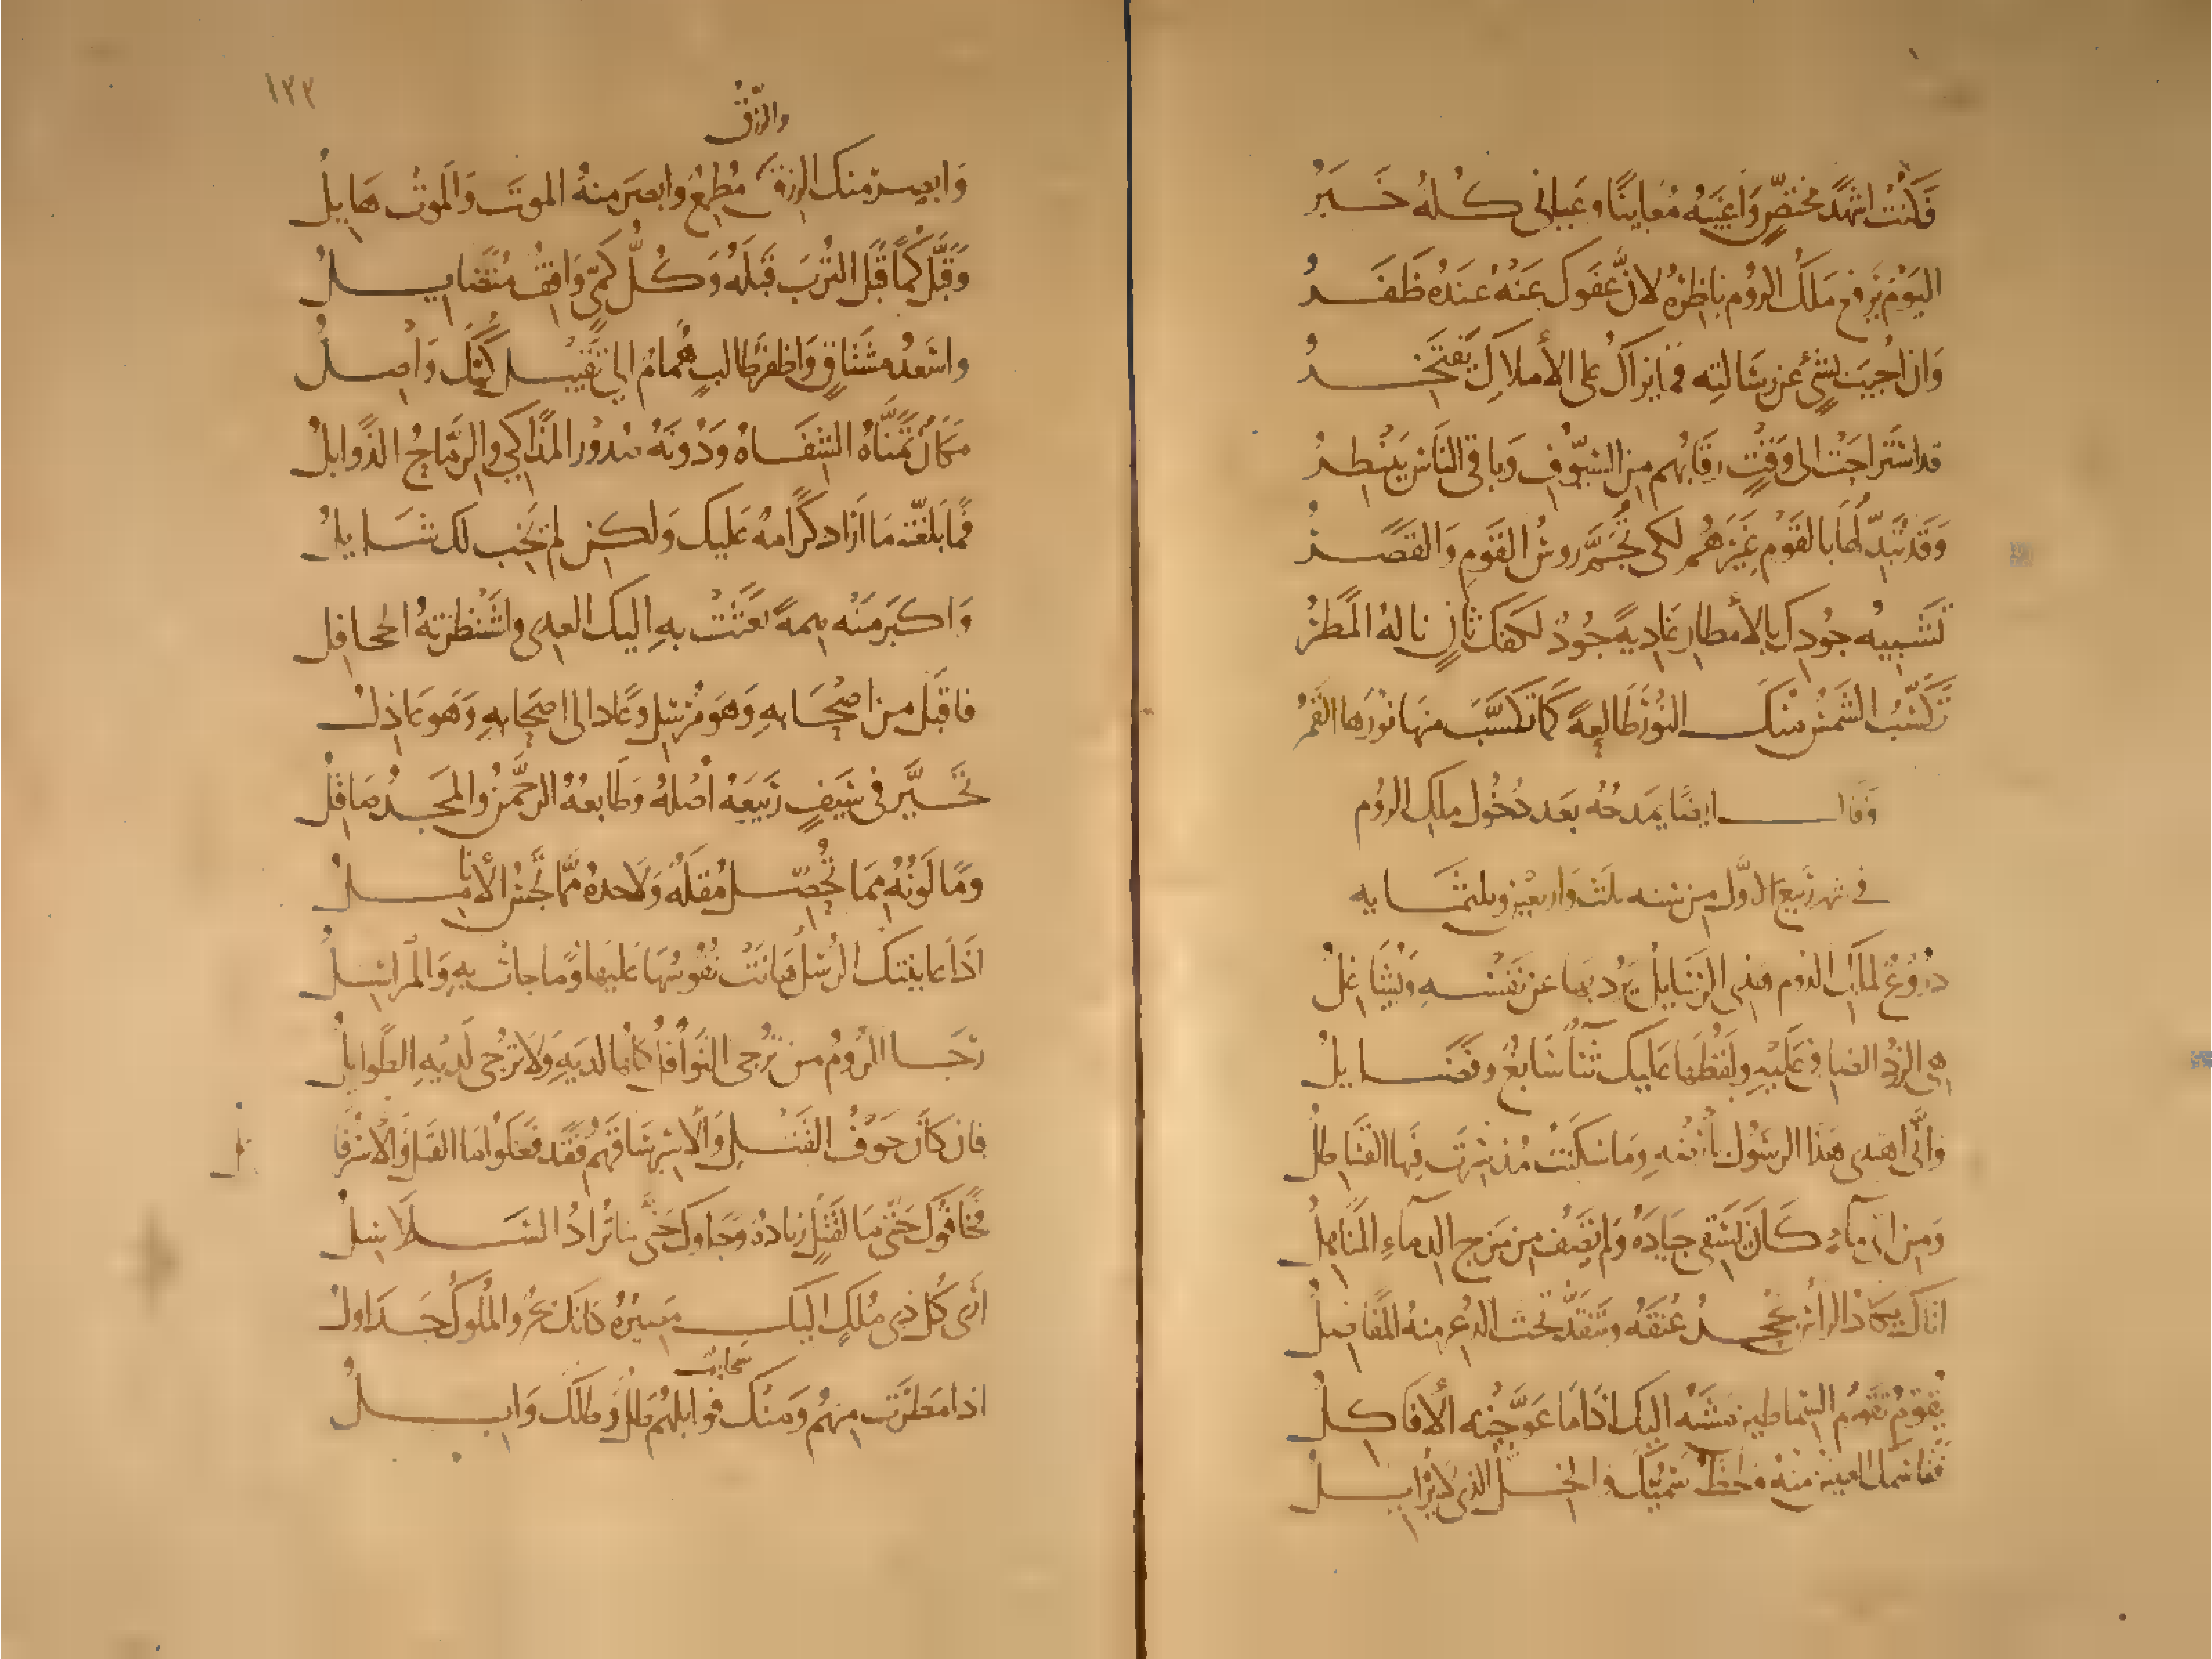 فَكُنْتُ اشهَدَ مختصٍّ وَاَغيَبَهُ مُعَاينًا وعيانى كـــله خَــبَرُ
اليَوْمَ يَرفع مَلكُ الروُم ناظِرَهُ لانَّ عفوَك عَنْهُ عِندَهُ ظَفَــرُ
وَان اجبتَ بشئٍ عن رسَالتِه فما يَزالُ على الأملاكِ يَفتَخِــرُ
قد استَراحَتْ الى وَقتٍ رقابُهم مِن السّيُوفِ وَباقى الناس يَنتظِرُ
وَقَد تُبَدِّلُهَا بالقَوْم غيرَهُم لكى تُجَمَّ روسُ القَوم وَالقَصَــرُ
تَشبِيهُ جُودِك بالأمطار غاديةً جُودٌ لكفك ثانٍ نالهُ المَطَرُ
تَكَسَّبُ الشَّمسُ منكَ النُّورَ طَالِعةً كمَا تَكسَّبَ منهَا نُورَها القَمَرُ
وَقَالــــــ ايضًا يمَدحُهُ بعَد دُخُول ملِك الروُم
فى شهر رَبيع الاوَّل مِن سَنه ثلث وَاربعين وثلثمَــايه
دُرُوعٌ لمَلكِ الروُم هَذِى الرَسَايلُ يَرُدُّ بهَا عن نَفْسِــهِ وَيُشَاغِلُ
هِى الزَرَدُ الضَافى عَلَيْهِ وَلَفظُهَا عَليكَ ثَنآ سَابغٌ وفَضَــايلُ
وَانّى اهتَدى هَذا الرسُولُ بأرْضهِ وَمَا سَكَنَتْ مُذ سِرْتَ فيها القسَاطلُ
وَمِن اىّ مآءٍ كَــانَ يَسْقى جِيَادَهُ وَلم تَصْفُ مِن مَزج الدِمآءِ المَناهِلُ
اتاكَ يَكادُ الرأسُ يَجْحَــدُ عُنقَهُ وَتَنْقَدُّ تحتَ الدِرع منهُ المفَاصِلُ
يُقوّمُ تَقوِيمُ السِّماطينِ مَشْيَهُ اليكَ اذَا مَا عَوَّجَتْه الأفَاكِــلُ
فقَاسَمكَ العينَينِ منهُ وَلحَظَهُ سَمِيُّكَ والخِــلُّ الذى لَا يُزايِــلُ
١٣٣
والرّزقُ
وَابصرَ منكَ الرِزقَ مُطمِعٌ وابصَرَ منهُ الموتَ وَالموتُ هَايلُ
وَقَبَّلَ كُمًّا قَبَّل التُرْبَ قَبْلَهُ وَكــلُّ كَمِىٍّ وَاقِفٌ مُتَضَايِــلُ
واسْعَدُ مشتَاقٍ وَاظفَرُ طَالبٍ هُمَامٌ الى تَقبِيــلِ كُمِّكَ وَاصِــلُ
مَكانٌ تَمَنَّاهُ الشفَــاهُ وَدُونَهُ صُدُورُ المَذَاكِى والرِّمَاحُ الذَوابلُ
فمَا بَلّغَتْهُ مَا ارَادَ كَرَامَةٌ عَليكَ وَلكــن لم يَخِب لكَ سَــايلُ
وَاكبَرَ مِنْهُ هِمةً بَعَثَتْ بهِ اليكَ العِدى واسْتَنظَرَتهُ الجحافِل
فاقبَلَ مِن اصْحَــابهِ وَهَو مُرْسَل وَعَادَ الى اصحَابهِ وَهَو عَاذِلُ
تَحَــيَّر فى سَيفٍ رَبيعَةُ اصْلهُ وَطابعُهُ الرحَّمنُ والمَجــدُ صَاقِلُ
ومَا لَونُهُ مِمَا تُحَصِّــلُ مُقلَةٌ وَلَا حدُهُ مِمَّا تَجُسُّ الأنامِــلُ
اذَا عَاينَتكَ الرُسْلُ هَانَتْ نُفُوسُهَا عَليهَا وَمَا جاتْ بهِ وَالمُرَاسِــلُ
رَجَــا الرُّومُ مَن تُرْجى النوافِلُ كلّها لَدَيهِ وَلَا تُرْجى لَديْهِ الطَوايلُ
فان كَانَ خَوْفُ القَتــلِ وَالاسْرِ سَاقَهُم فَقَد فَعَلوُا مَا القتلُ وَالاسْرُ فَا
عِلُ
فخَافُوكَ حَتَّى مَا لقَتْلٍ زيَادَةٌ وَجَاوكَ حَتَّى مَا تُرَادُ السَــلاسِلُ
ارَى كُلَّ ذِى مُلكٍ اليكَ مَصِيرُهُ كانّكَ بَحْرٌ والمُلُوكُ جَــدَاولُ
سَحايبٌ
اذا مَطَرَت مِنهُم وَمنْكَ فوَابلُهُم طَلٌّ وَطَلُّكَ وَابِــلُ